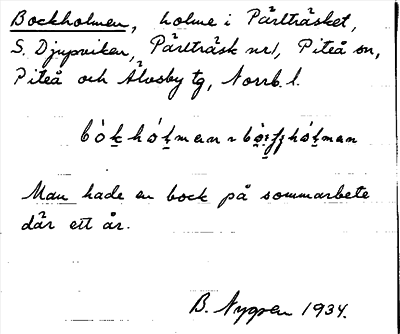 Bockholmen, holme i Pärlträsket,
S. Djupviken, Pärlträsk nr 1, Piteå sn,
Piteå och Älvsby tg, Norrb. l.
Man hade en bock på sommarbete
där ett år.
B. Nygren 1934.